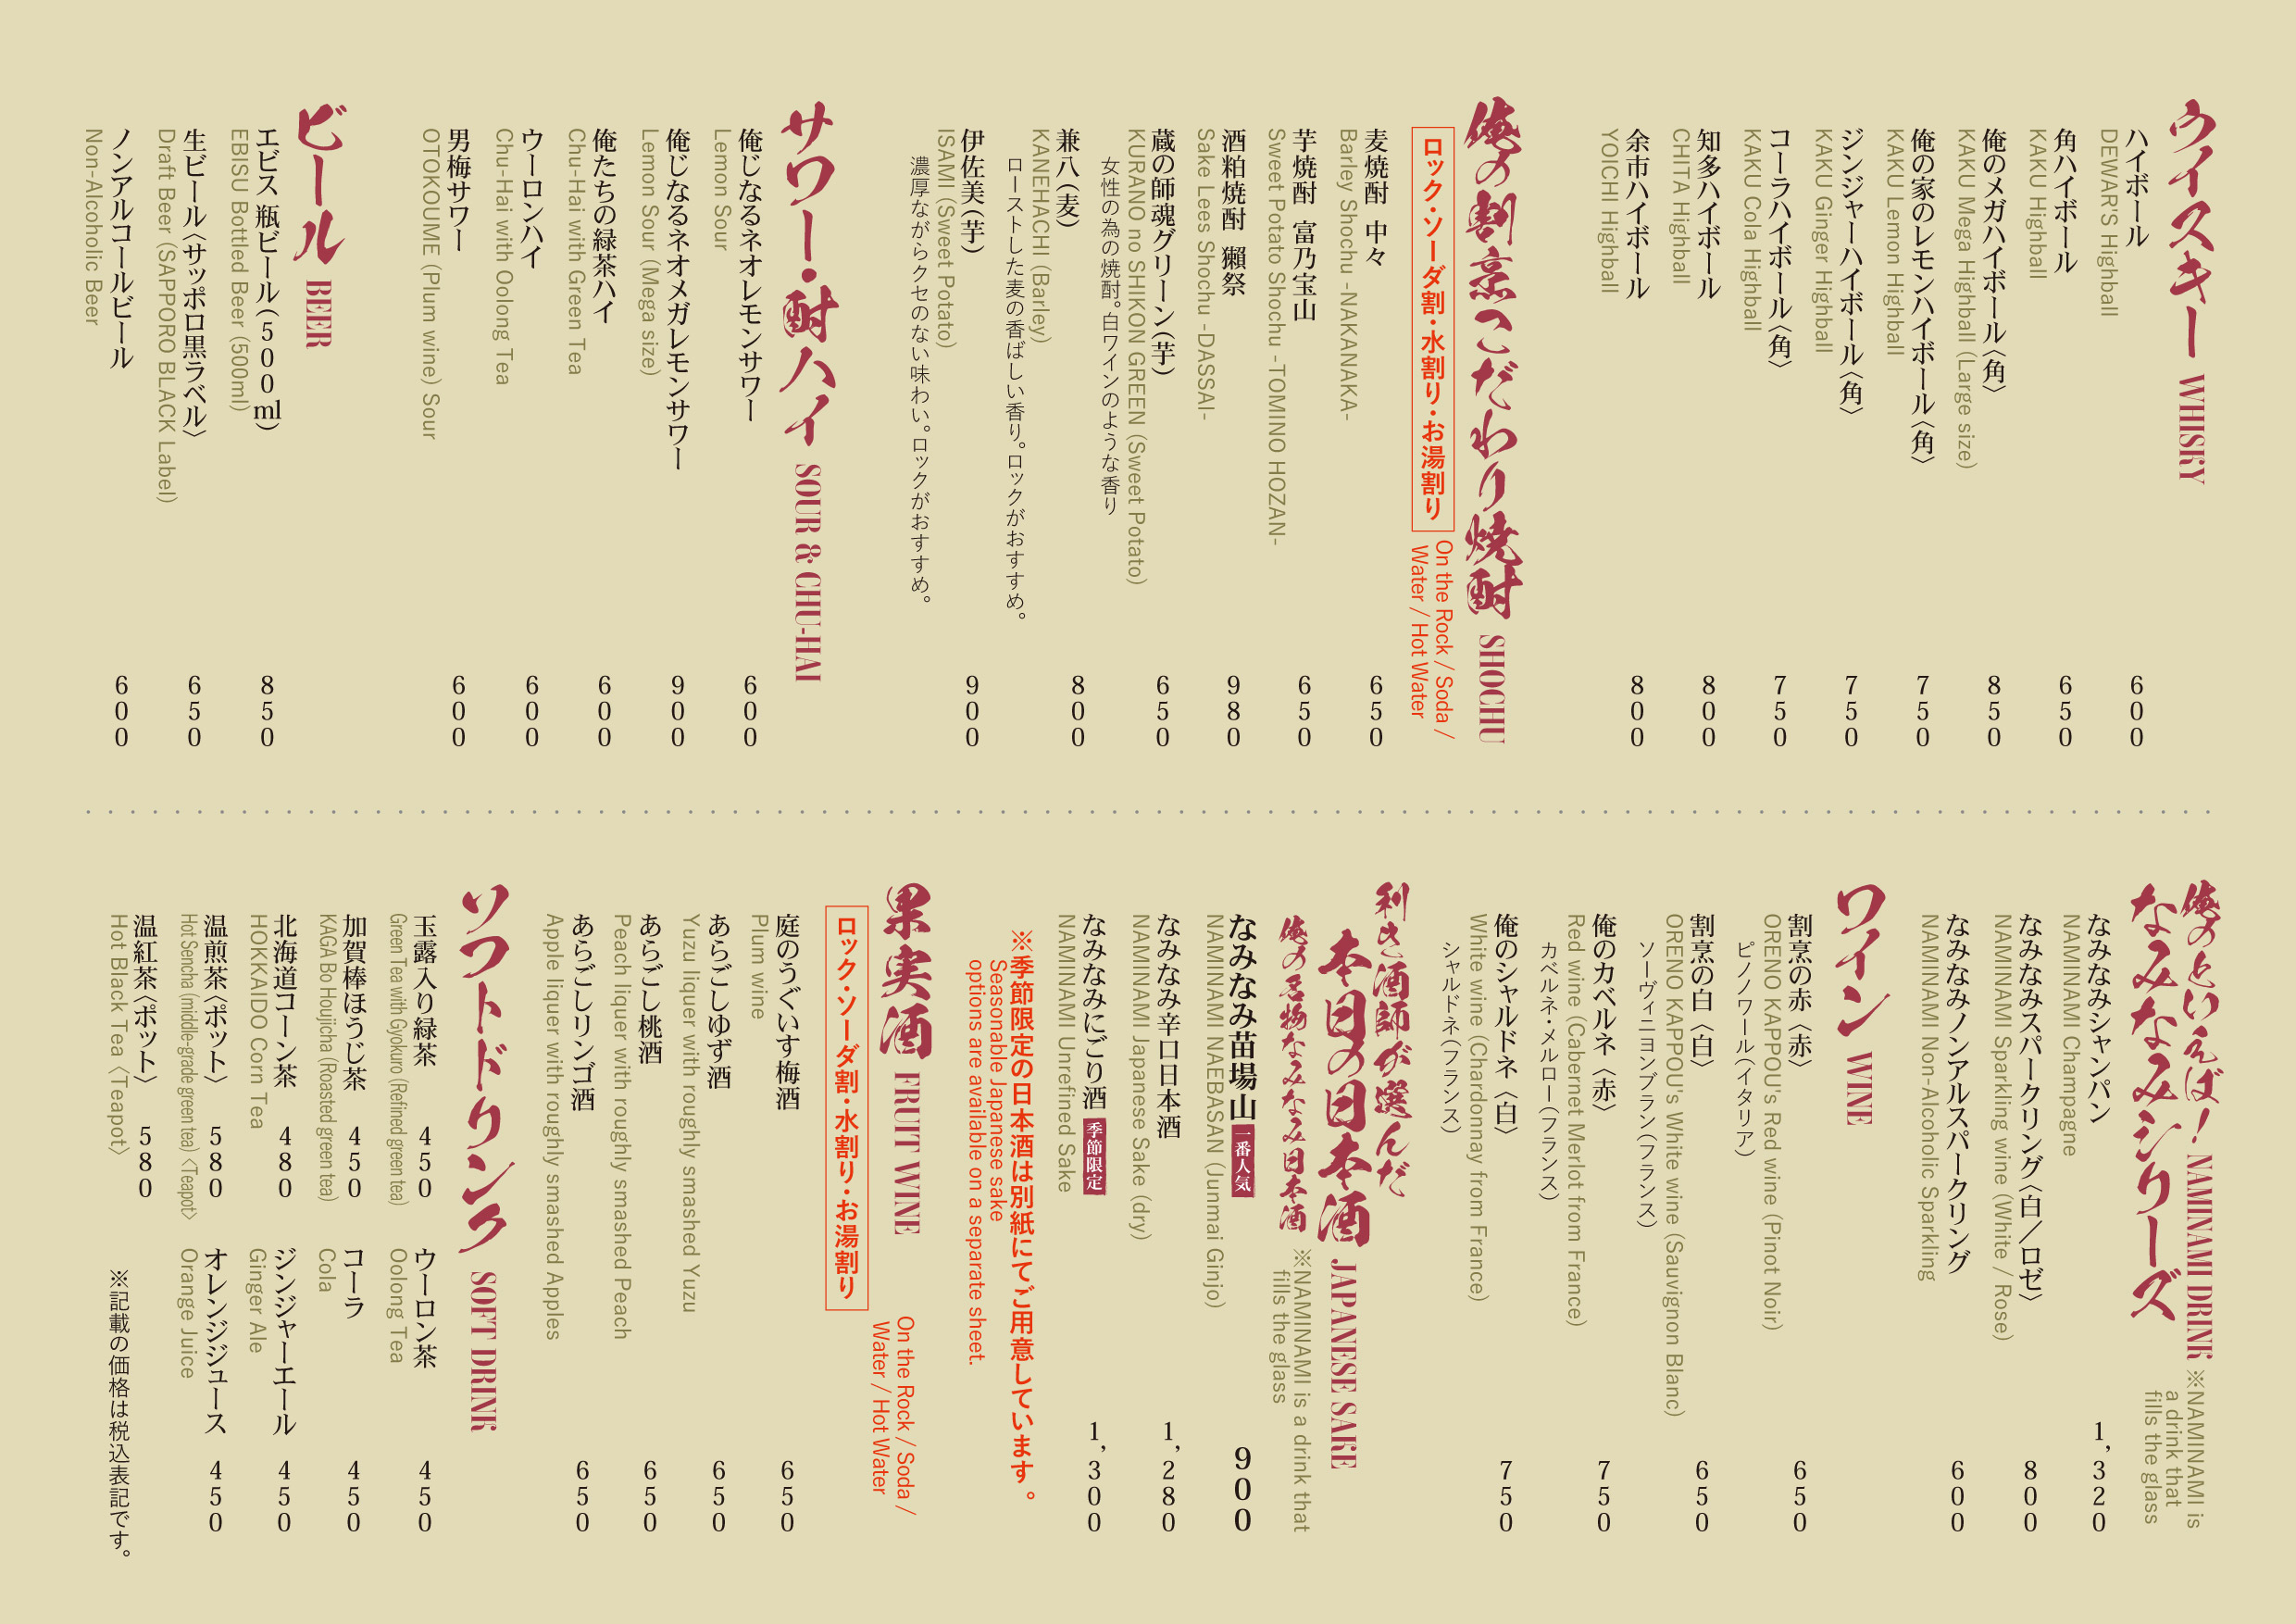 ウイスキー WHISKY
ハイボール 600
DEWAR'S Highball
角ハイボール 650
KAKU Highball
俺のメガハイボール〈角〉 850
KAKU Mega Highball (Large size)
俺の家のレモンハイボール〈角〉 750
KAKU Lemon Highball
ジンジャーハイボール〈角〉 750
KAKU Ginger Highball
コーラハイボール〈角〉 750
KAKU Cola Highball
知多ハイボール 800
CHITA Highball
余市ハイボール 800
YOICHI Highball
俺の割烹こだわり焼酎 SHOCHU
ロック・ソーダ割・水割り・お湯割り
On the Rock / Soda /
Water / Hot Water
麦焼酎 中々 650
Barley Shochu -NAKANAKA-
芋焼酎 富乃宝山 650
Sweet Potato Shochu -TOMINO HOZAN-
酒粕焼酎 獺祭 980
Sake Lees Shochu -DASSAI-
蔵の師魂グリーン(芋) 650
KURANO no SHIKON GREEN (Sweet Potato)
女性の為の焼酎。白ワインのような香り
兼八(麦) 800
KANEHACHI (Barley)
ローストした麦の香ばしい香り。ロックがおすすめ。
伊佐美(芋) 900
ISAMI (Sweet Potato)
濃厚ながらクセのない味わい。ロックがおすすめ。
サワー・酎ハイ SOUR & CHU-HAI
俺じなるネオレモンサワー 600
Lemon Sour
俺じなるネオメガレモンサワー 900
Lemon Sour (Mega size)
俺たちの緑茶ハイ 600
Chu-Hai with Green Tea
ウーロンハイ 600
Chu-Hai with Oolong Tea
男梅サワー 600
OTOKOUME (Plum wine) Sour
ビール BEER
エビス 瓶ビール(500ml) 850
EBISU Bottled Beer (500ml)
生ビール〈サッポロ黒ラベル〉 650
Draft Beer (SAPPORO BLACK Label)
ノンアルコールビール 600
Non-Alcoholic Beer
俺のといえば！
なみなみシリーズ
NAMINAMI DRINK
※NAMINAMI is
a drink that
fills the glass
なみなみシャンパン 1,320
NAMINAMI Champagne
なみなみスパークリング〈白／ロゼ〉 800
NAMINAMI Sparkling wine (White / Rose)
なみなみノンアルスパークリング 600
NAMINAMI Non-Alcoholic Sparkling
ワイン WINE
割烹の赤〈赤〉 650
ORENO KAPPOU's Red wine (Pinot Noir)
ピノノワール(イタリア)
割烹の白〈白〉 650
ORENO KAPPOU's White wine (Sauvignon Blanc)
ソーヴィニヨンブラン(フランス)
俺のカベルネ〈赤〉 750
Red wine (Cabernet Merlot from France)
カベルネ・メルロー(フランス)
俺のシャルドネ〈白〉 750
White wine (Chardonnay from France)
シャルドネ(フランス)
利き酒師が選んだ
本日の日本酒 JAPANESE SAKE
俺の名物なみなみ日本酒
※NAMINAMI is a drink that
fills the glass
なみなみ苗場山 一番人気 900
NAMINAMI NAEBASAN (Junmai Ginjo)
なみなみ辛口日本酒 1,280
NAMINAMI Japanese Sake (dry)
なみなみにごり酒 季節限定 1,300
NAMINAMI Unrefined Sake
※季節限定の日本酒は別紙にてご用意しています。
Seasonable Japanese sake
options are available on a separate sheet.
果実酒 FRUIT WINE
ロック・ソーダ割・水割り・お湯割り
On the Rock / Soda /
Water / Hot Water
庭のうぐいす梅酒 650
Plum wine
あらごしゆず酒 650
Yuzu liquer with roughly smashed Yuzu
あらごし桃酒 650
Peach liquer with roughly smashed Peach
あらごしリンゴ酒 650
Apple liquer with roughly smashed Apples
ソフトドリンク SOFT DRINK
玉露入り緑茶 450
Green Tea with Gyokuro (Refined green tea)
加賀棒ほうじ茶 450
KAGA Bo Houjicha (Roasted green tea)
北海道コーン茶 480
HOKKAIDO Corn Tea
温煎茶〈ポット〉 580
Hot Sencha (middle-grade green tea) 〈Teapot〉
温紅茶〈ポット〉 580
Hot Black Tea 〈Teapot〉
ウーロン茶 450
Oolong Tea
コーラ 450
Cola
ジンジャーエール 450
Ginger Ale
オレンジジュース 450
Orange Juice
※記載の価格は税込表記です。